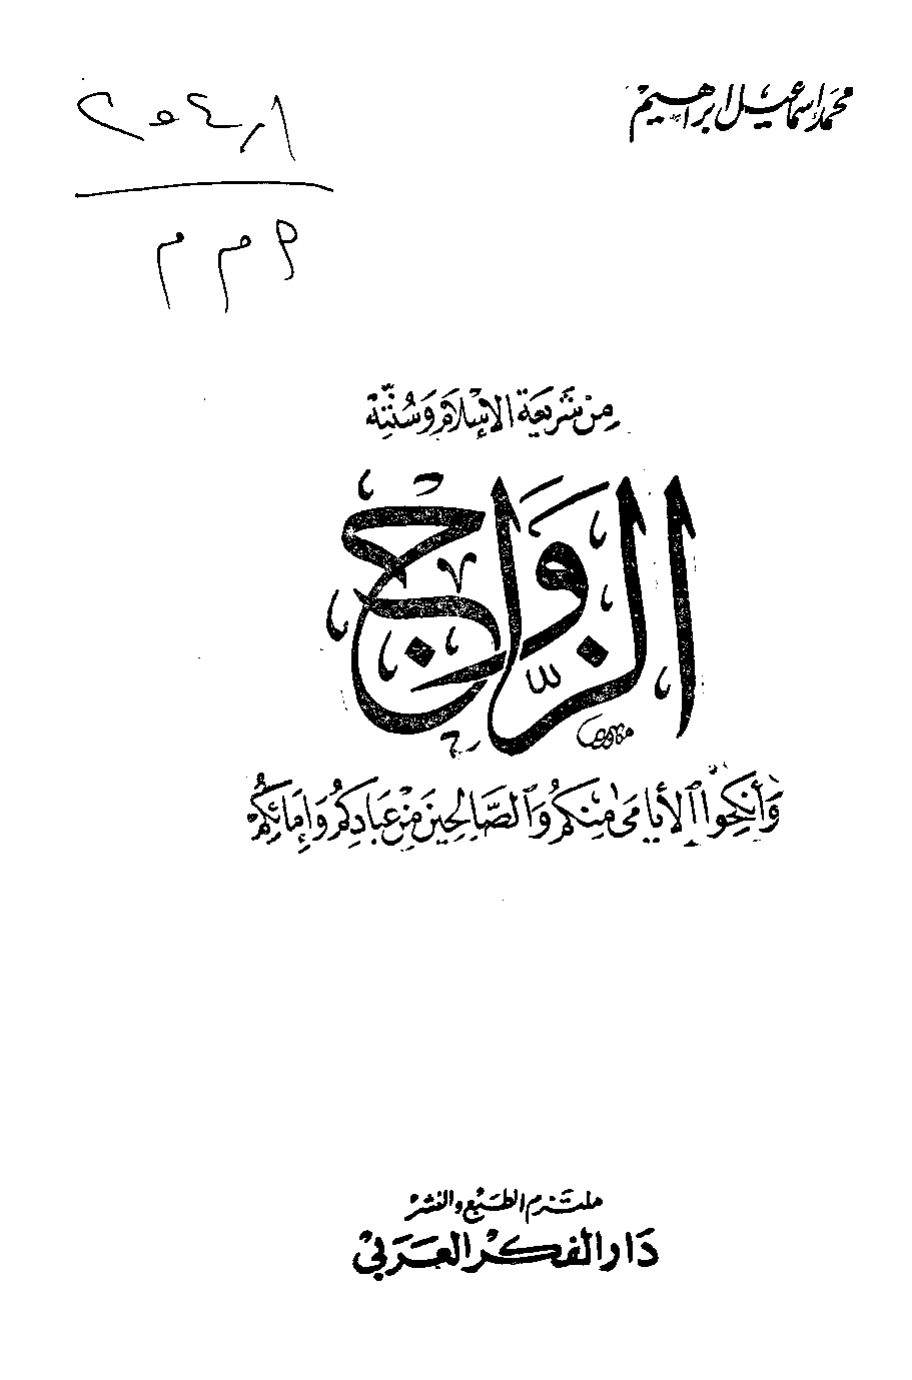 محمد إسماعيل إبراهيم
من شريعة الإسلام وسنته
الزواج
وأنكحوا الأيامى منكم والصالحين من عبادكم وإمائكم
ملتزم الطبع والنشر
دار الفكر العربي